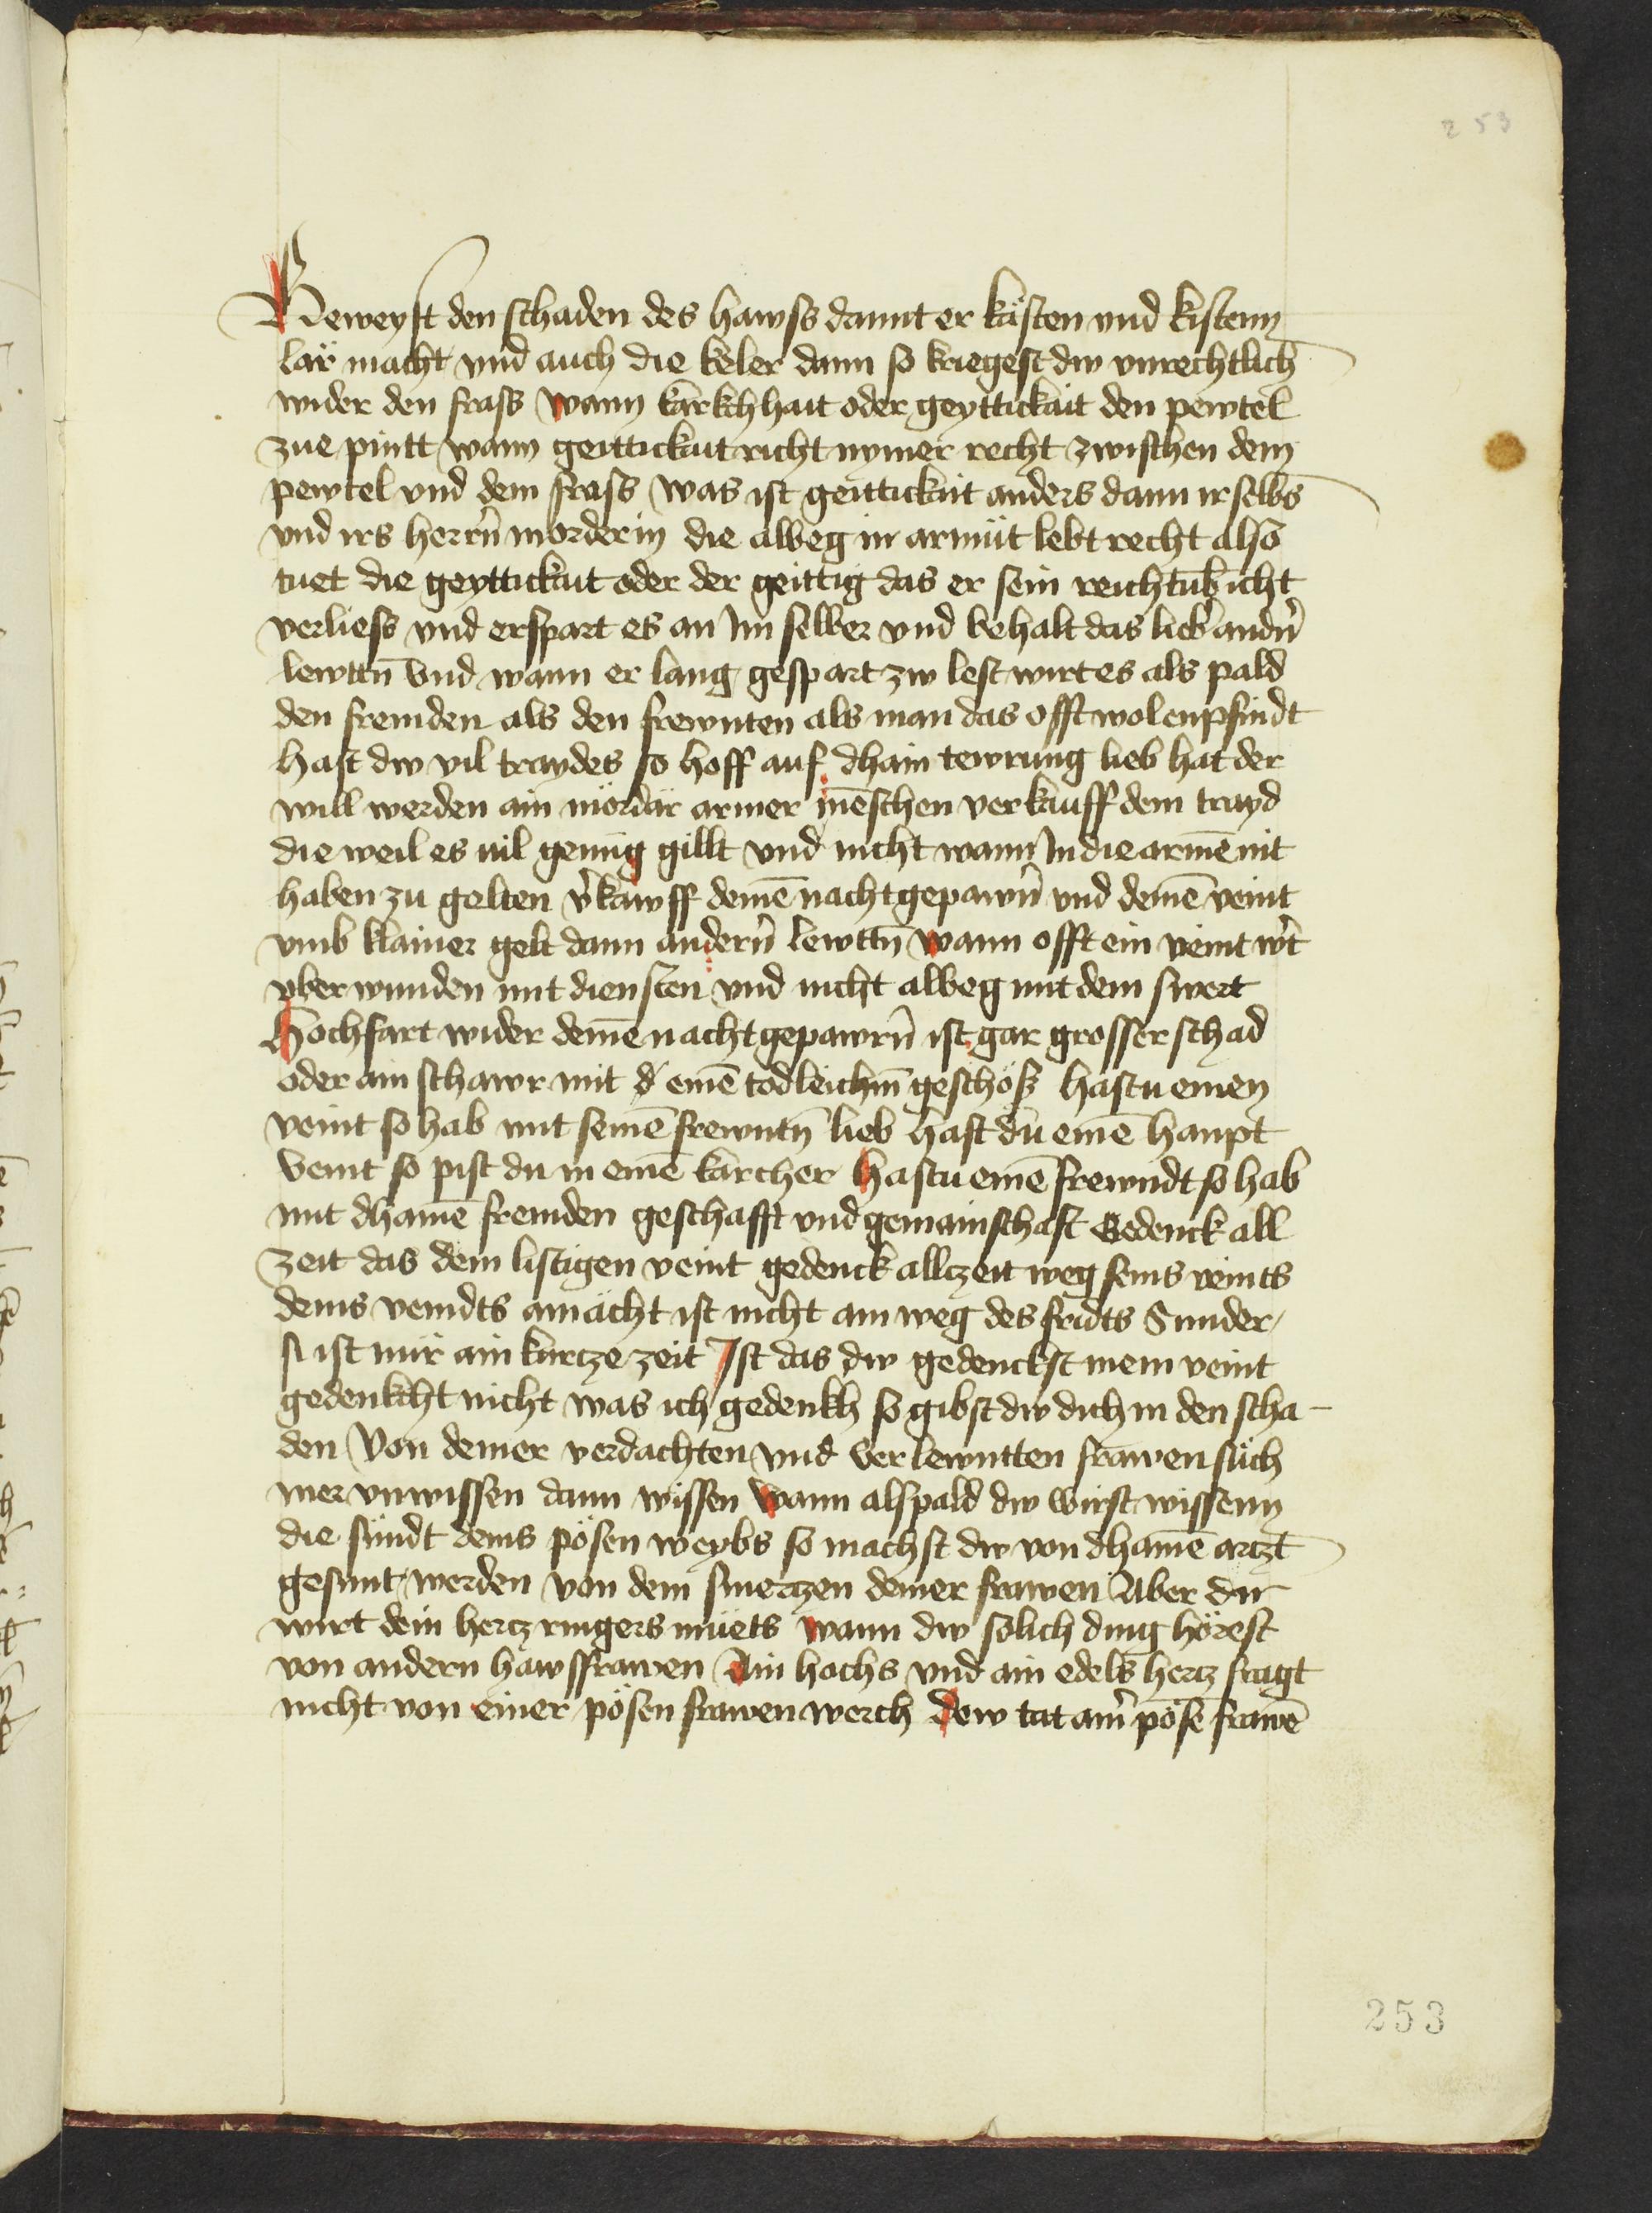 253
Beweyst den schaden des hawss damit er kästen vnd kistenn
lär macht vnd auch die keler dann so kriegest dw vnrechtlich
wider den frass wann karkhhait oder geyttickait den pewtel
zue pintt wann geittickait richt nymer recht zwischen dem
pewtel vnd dem frass was ist geittickait anders dann ir selbs
vnd irs herrn̄ morderin die albeg in armüt lebt recht also
tuet die geyttickait oder der geittig das er sein reichtūb icht
verliess vnd erspart es an Im selber vnd behalt das lieb andn̄
lewttn̄ Vnd wann er lang gespart zw lest wirt es als pald
den fremden als den frewnten als man das offt wol enpfindt
hast dw vil traydes so hoff auf dhain tewrung lieb hat der
will werden ain mördär armer mēschen verkauff dein trayd
die weil es nil genüg gillt vnd nicht wann In die armē nit
haben zu gelten v̄kawff deinē nachtgepawrn̄ vnd deinē veint
vmb klainer gelt dann andern̄ lewttn̄ wann offt ein veint wirt
vberwunden mit diensten vnd nicht albeg mit dem swert
Hochfart wider deinē nachtgepawrn̄ ist gar grosser schad
oder ain schawr mit d' einē todleichm̄ geschöss hastu einen
veint so hab mit seinē frewntn̄ lieb hast dü einē haupt
veint so pist du in einē karcher hastu einē frewndt so hab
mit dhainē fremden geschafft vnd gemainschafft Gedenck all
zeit das dein listigen veint gedenck allczeit weg seins veints
deins veindts amächt ist nicht ain weg des fridts Sunder
si ist nür ain kurtze zeit Ist das dw gedenckst mein veint
gedenkcht nicht was ich gedenkh so gibst dw dich in den scha-
den Von deiner verdachten vnd verlewntten frawen süch
mer vnwissen dann wissen wann alspald dw wirst wissenn
die sündt deins pösen weybs so machst dw von dhainē artzt
gesunt werden von dem smertzen deiner frawen Aber dir
wirt dein hertz ringers müets wann dw solich ding hörest
von andern hawsfrawen Ain hochs vnd ain edels hertz fragt
nicht von einer pösen frawen werch Dew tat ainr̄ pösē frawē
253